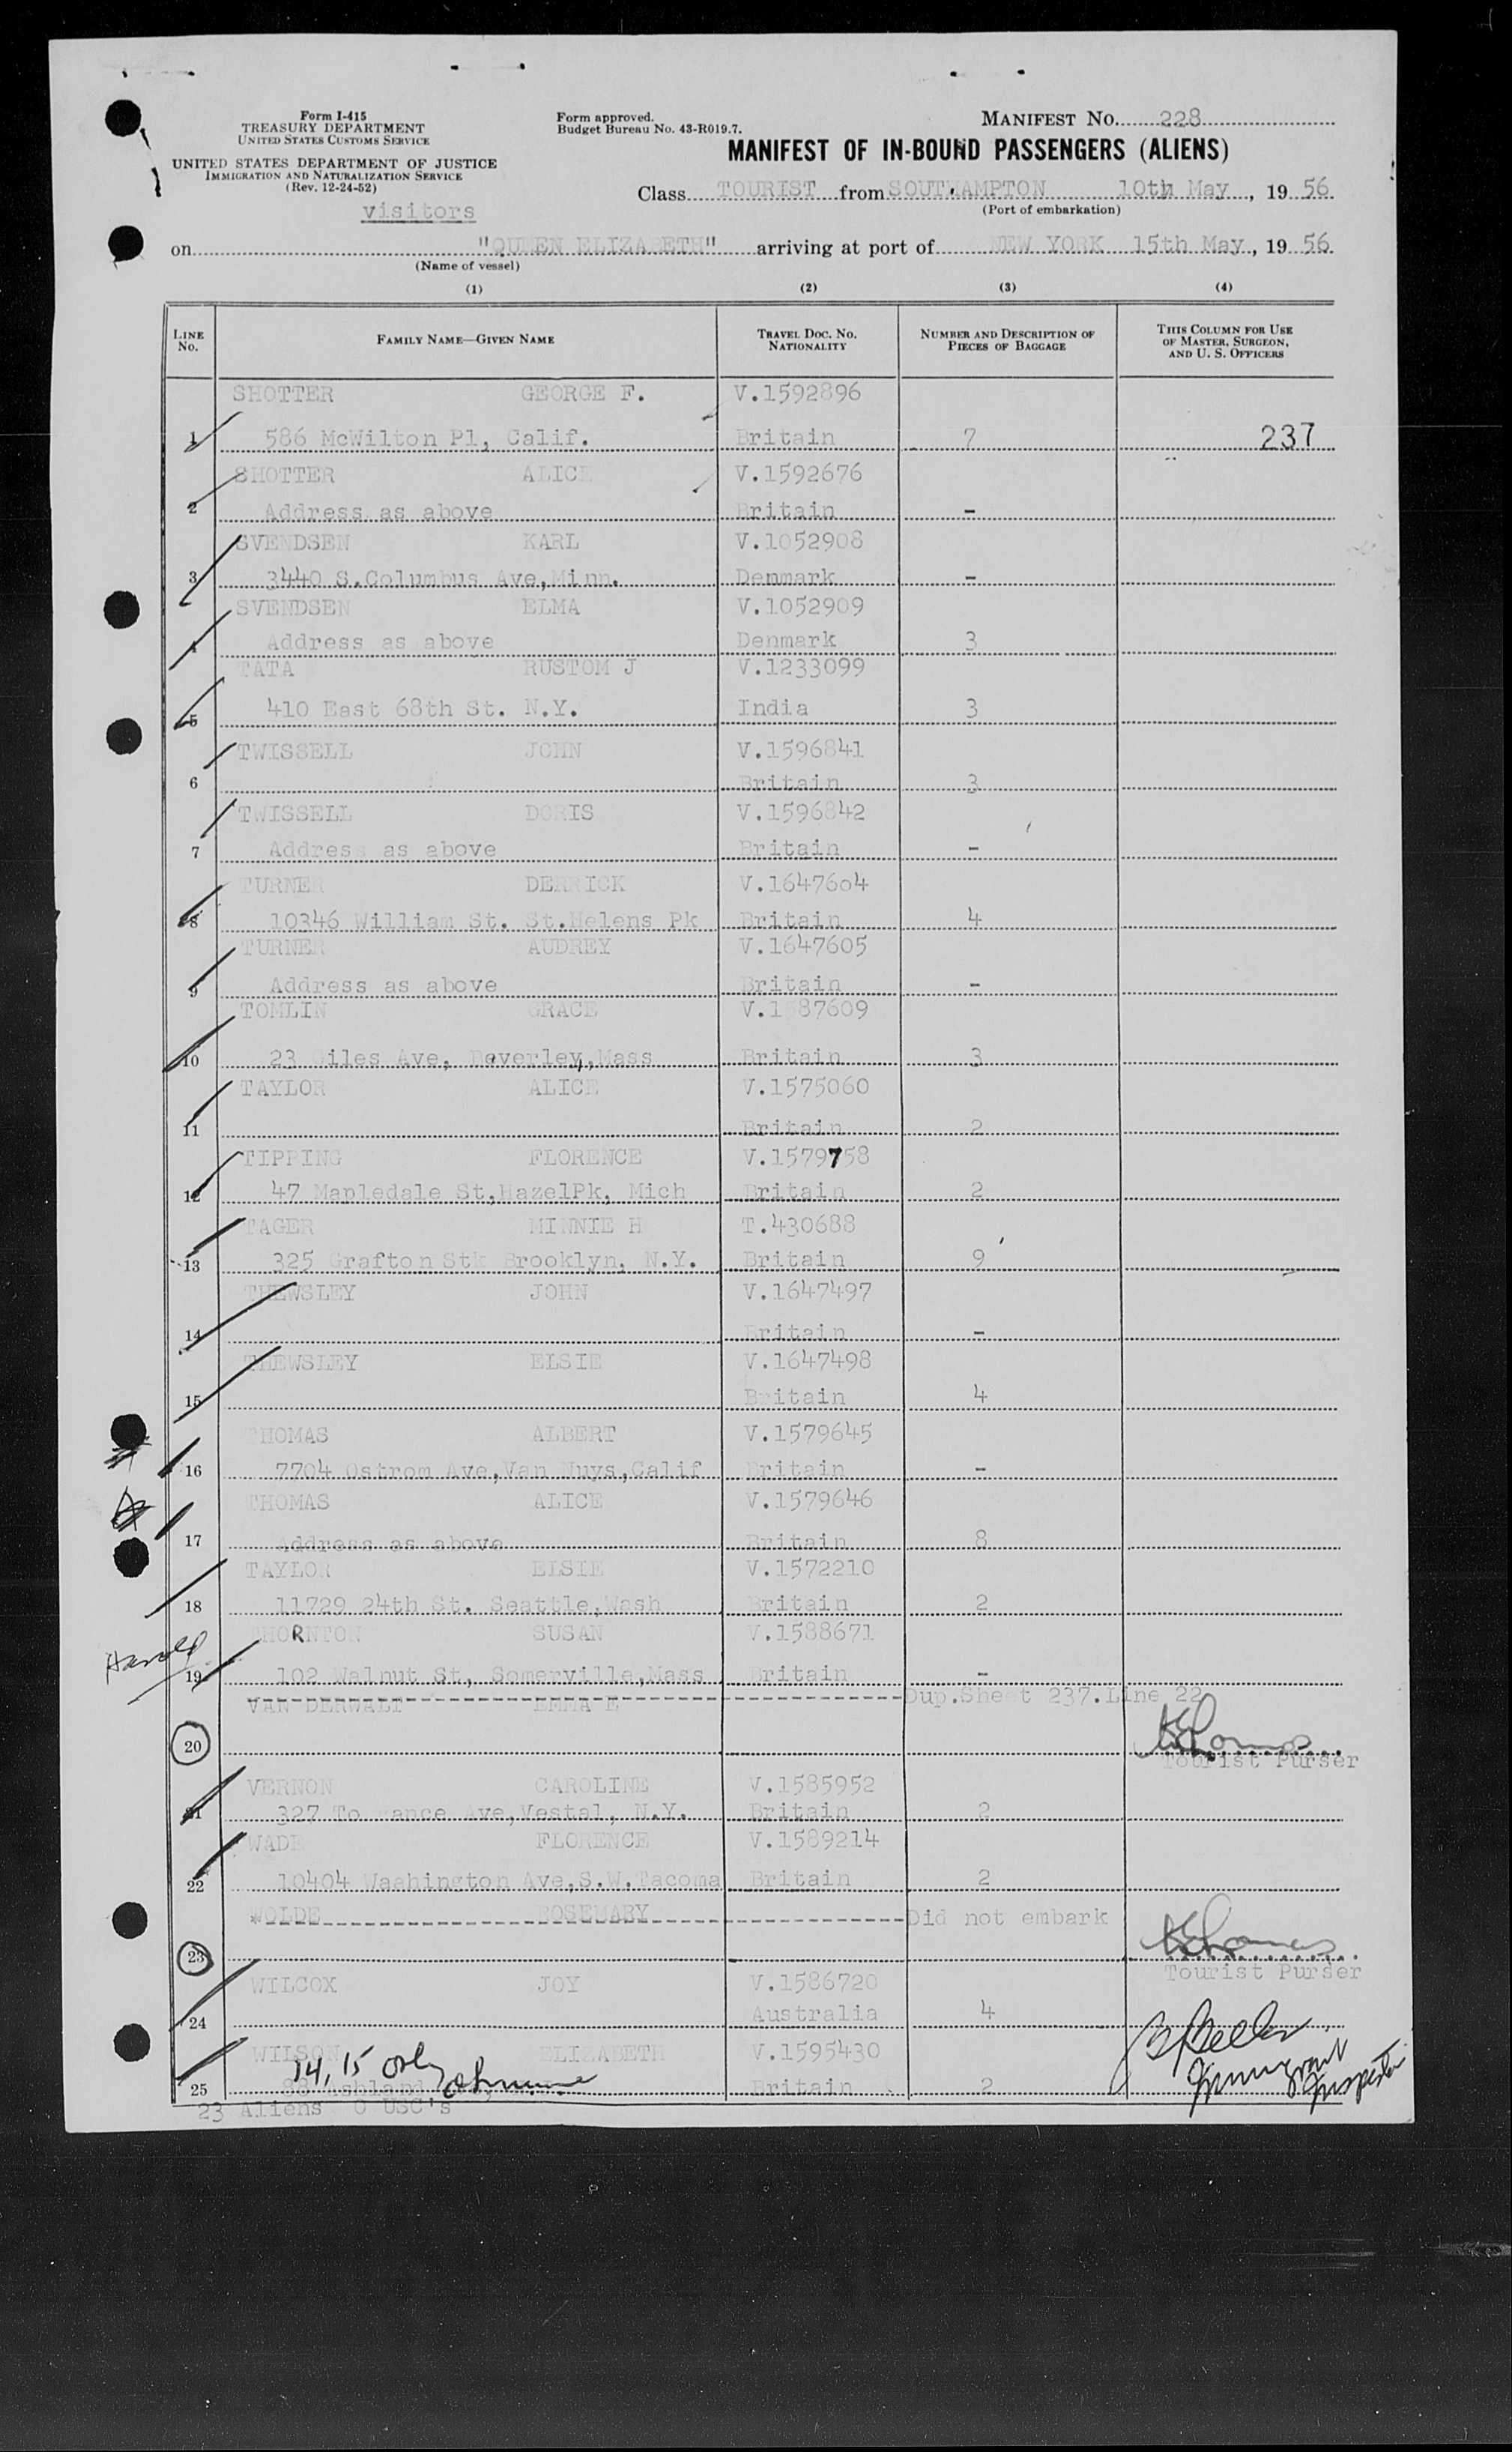 Form I-415
TREASURY DEPARTMENT
UNITED STATES CUSTOMS SERVICE
UNITED STATES DEPARTMENT OF JUSTICE
IMMIGRATION AND NATURALIZATION SERVICE
(Rev. 12-24-52)
visitors
Form approved.
Budget Bureau No. 43-R019.7.
MANIFEST No. 228
MANIFEST OF IN-BOUND PASSENGERS (ALIENS)
Class TOURIST from SOUTHAMPTON 10th May, 19 56
(Port of embarkation)
on "QUEEN ELIZABETH" arriving at port of NEW YORK 15th May, 19 56
(Name of vessel)
(1) (2) (3) (4)
LINE No. FAMILY NAME—GIVEN NAME TRAVEL DOC. NO. NATIONALITY NUMBER AND DESCRIPTION OF PIECES OF BAGGAGE THIS COLUMN FOR USE OF MASTER, SURGEON, AND U. S. OFFICERS
SHOTTER GEORGE F. V.1592896
1 586 McWilton Pl, Calif. Britain 7 237
SHOTTER ALICE V.1592676
2 Address as above Britain -
SVENDSEN KARL V.1052908
3 3440 S.Columbus Ave,Minn. Denmark -
SVENDSEN ELMA V.1052909
4 Address as above Denmark 3
TATA RUSTOM J V.1233099
5 410 East 68th St. N.Y. India 3
TWISSELL JOHN V.1596841
6 Britain 3
TWISSELL DORIS V.1596842
7 Address as above Britain -
TURNER DERRICK V.1647604
8 10346 William St. St.Helens Pk Britain 4
TURNER AUDREY V.1647605
9 Address as above Britain -
TOMLIN GRACE V.1 87609
10 23 iles Ave, Beverley,Mass Britain 3
TAYLOR ALICE V.1575060
11 Britain 2
TIPPING FLORENCE V.1579758
12 47 Mapledale St,HazelPk, Mich Britain 2
TAGER MINNIE H T.430688
13 325 Grafton St Brooklyn, N.Y. Britain 9
THEWSLEY JOHN V.1647497
14 Britain -
THEWSLEY ELSIE V.1647498
15 Britain 4
THOMAS ALBERT V.1579645
16 7704 Ostrom Ave,Van Nuys,Calif Britain -
THOMAS ALICE V.1579646
17 Address as above Britain 8
TAYLOR ELSIE V.1572210
18 11729 24th St. Seattle,Wash Britain 2
THORNTON SUSAN V.1588671
Harold
19 102 Walnut St, Somerville,Mass Britain -
VAN DERWALT EMMA E Dup.Sheet 237.Line 22
20
Tourist Purser
VERNON CAROLINE V.1585952
21 327 To rance Ave,Vestal, N.Y. Britain 2
WADE FLORENCE V.1589214
22 10404 Washington Ave,S.W.Tacoma Britain 2
WOLDE ROSEMARY Did not embark
23
Tourist Purser
WILCOX JOY V.1586720
24 Australia 4
WILSON ELIZABETH V.1595430
14, 15 only
25 88 Ashland Britain 2
Immigrant Inspector
23 Aliens 0 USC's